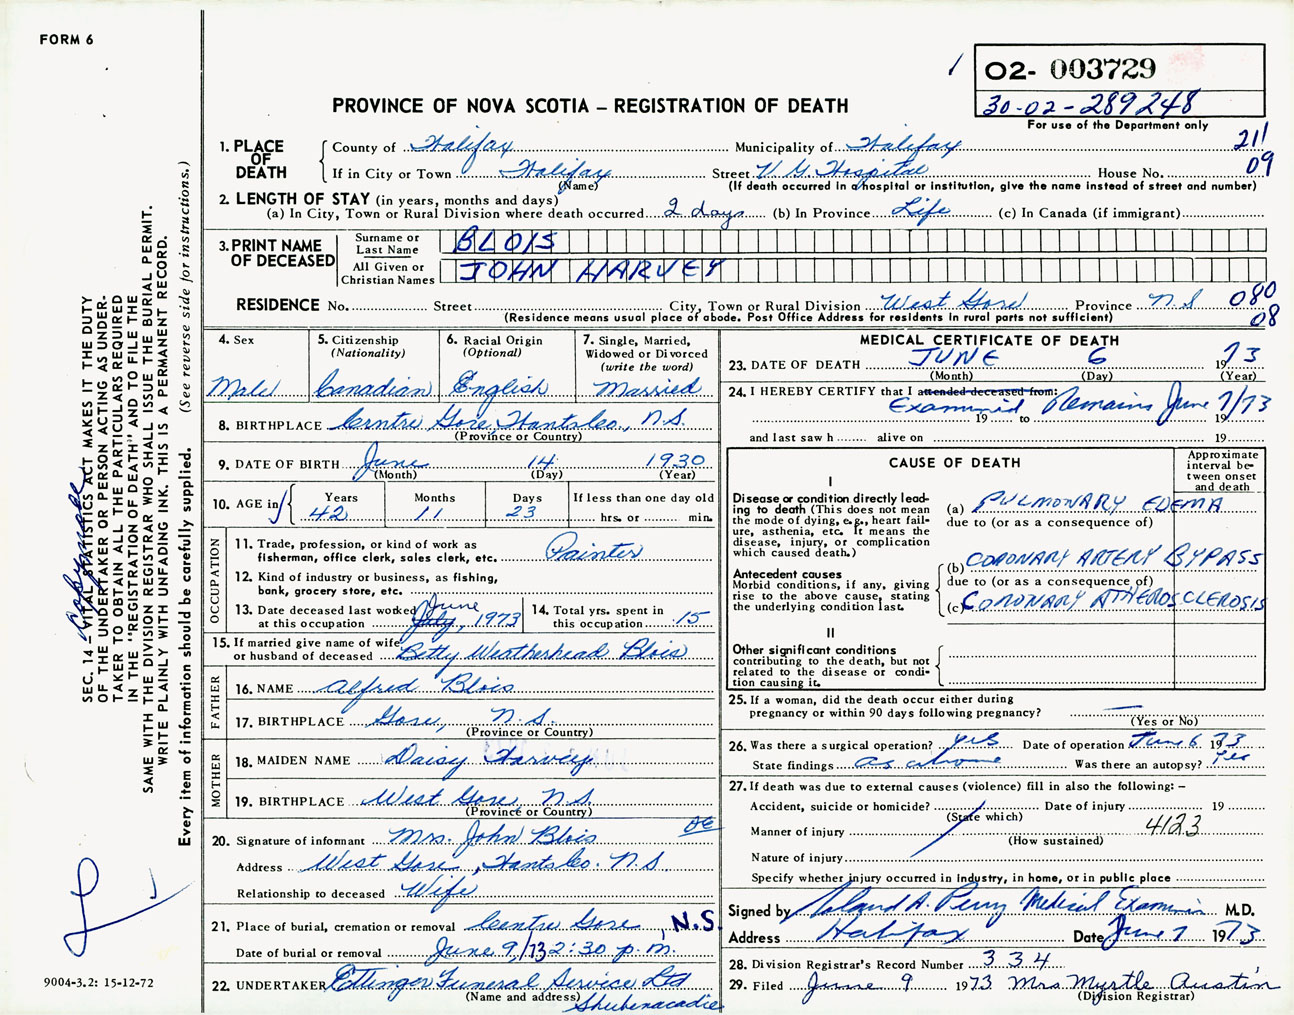 FORM 6
O2- 003729
30-02-289248
For use of the Department only
PROVINCE OF NOVA SCOTIA – REGISTRATION OF DEATH
211
09
1. PLACE OF DEATH
County of Halifax Municipality of Halifax
If in City or Town Halifax Street V G Hospital House No.
(Name) (If death occurred in a hospital or institution, give the name instead of street and number)
2. LENGTH OF STAY (in years, months and days)
(a) In City, Town or Rural Division where death occurred 2 days (b) In Province Life (c) In Canada (if immigrant)
3. PRINT NAME OF DECEASED
Surname or Last Name BLOIS
All Given or Christian Names JOHN HARVEY
RESIDENCE No. Street City, Town or Rural Division West Gore Province N.S 080
(Residence means usual place of abode. Post Office Address for residents in rural parts not sufficient) 08
4. Sex
Male
5. Citizenship (Nationality)
Canadian
6. Racial Origin (Optional)
English
7. Single, Married, Widowed or Divorced (write the word)
Married
8. BIRTHPLACE Centre Gore, Hants Co., N.S.
(Province or Country)
9. DATE OF BIRTH June 14 1930
(Month) (Day) (Year)
10. AGE in
Years Months Days If less than one day old
42 11 23 hrs. or min.
OCCUPATION
11. Trade, profession, or kind of work as
fisherman, office clerk, sales clerk, etc. Painter
12. Kind of industry or business, as fishing,
bank, grocery store, etc.
13. Date deceased last worked June
at this occupation July, 1973
14. Total yrs. spent in
this occupation 15
15. If married give name of wife
or husband of deceased Betty Weatherhead Blois
FATHER
16. NAME Alfred Blois
17. BIRTHPLACE Gore, N.S.
(Province or Country)
MOTHER
18. MAIDEN NAME Daisy Harvey
19. BIRTHPLACE West Gore N.S.
(Province or Country)
20. Signature of informant Mrs. John Blois
Address West Gore, Hants Co. N.S.
Relationship to deceased Wife
21. Place of burial, cremation or removal Centre Gore, N.S.
Date of burial or removal June 9/73 2:30 p.m.
22. UNDERTAKER Ettinger Funeral Service Ltd
(Name and address) Shubenacadie
MEDICAL CERTIFICATE OF DEATH
23. DATE OF DEATH JUNE 6 1973
(Month) (Day) (Year)
24. I HEREBY CERTIFY that I attended deceased from:
Examined Remains June 7/73
19 to 19
and last saw h alive on 19
CAUSE OF DEATH
Approximate interval between onset and death
I
Disease or condition directly leading to death (This does not mean the mode of dying, e.g., heart failure, asthenia, etc. It means the disease, injury, or complication which caused death.)
(a) PULMONARY EDEMA
due to (or as a consequence of)
Antecedent causes
Morbid conditions, if any, giving rise to the above cause, stating the underlying condition last.
(b) CORONARY ARTERY BYPASS
due to (or as a consequence of)
(c) CORONARY ATHEROSCLEROSIS
II
Other significant conditions
contributing to the death, but not related to the disease or condition causing it.
25. If a woman, did the death occur either during
pregnancy or within 90 days following pregnancy? —
(Yes or No)
26. Was there a surgical operation? yes Date of operation June 6 1973
State findings as above Was there an autopsy? Yes
27. If death was due to external causes (violence) fill in also the following: –
Accident, suicide or homicide? Date of injury 19
(State which)
Manner of injury 4123
(How sustained)
Nature of injury
Specify whether injury occurred in industry, in home, or in public place
Signed by Roland A. Perry Medical Examiner M.D.
Address Halifax Date June 7 1973
28. Division Registrar's Record Number 334
29. Filed June 9 1973 Mrs Myrtle Austin
(Division Registrar)
SEC. 14 – VITAL STATISTICS ACT MAKES IT THE DUTY
OF THE UNDERTAKER OR PERSON ACTING AS UNDER-
TAKER TO OBTAIN ALL THE PARTICULARS REQUIRED
IN THE "REGISTRATION OF DEATH" AND TO FILE THE
SAME WITH THE DIVISION REGISTRAR WHO SHALL ISSUE THE BURIAL PERMIT.
WRITE PLAINLY WITH UNFADING INK. THIS IS A PERMANENT RECORD.
Every item of information should be carefully supplied. (See reverse side for instructions.)
9004-3.2: 15-12-72